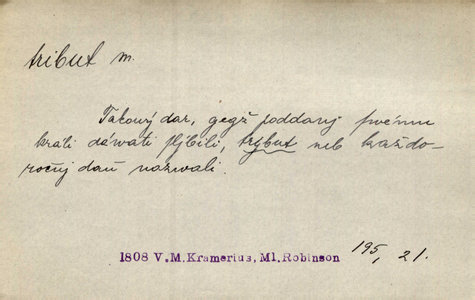 tribut m.
Takowý dar, gegž poddaný swému
králi dáwati slíbili, trybut neb každo-
ročnj daň nazwali.
1808 V.M.Kramerius, Ml.Robinson 195, 21.